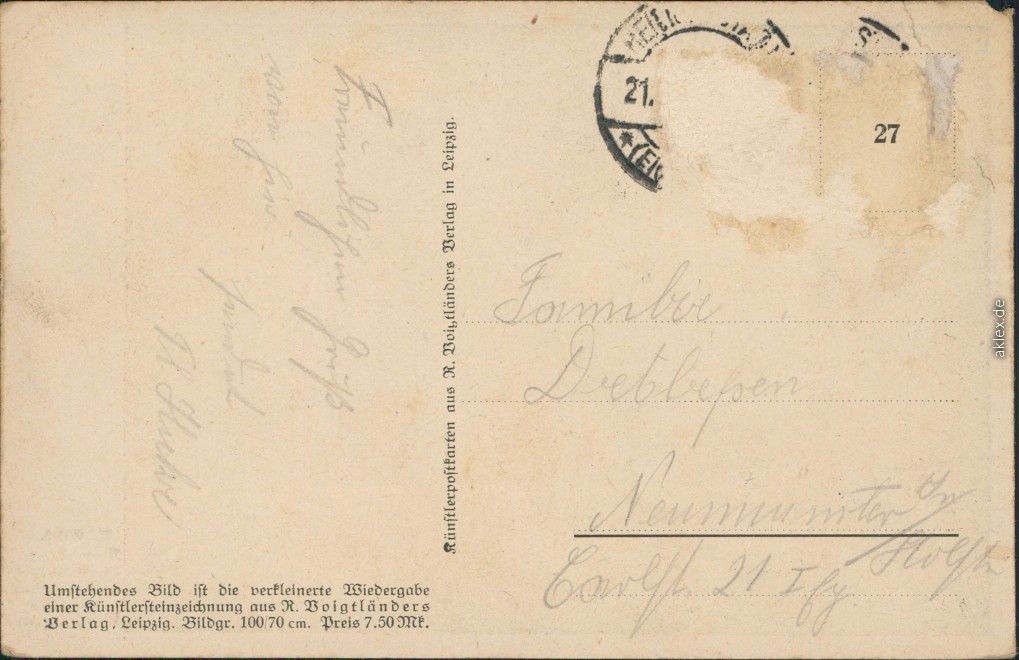 Freundlichen Gruß
von hier
sendet
Künstlerpostkarten aus R. Voigtländers Verlag in Leipzig.
Umstehendes Bild ist die verkleinerte Wiedergabe
einer Künstlersteinzeichnung aus R. Voigtländers
Verlag. Leipzig. Bildgr. 100/70 cm. Preis 7.50 Mk.
21.
27
Familie
Neumünster i/
Holst
21 I
aklex.de